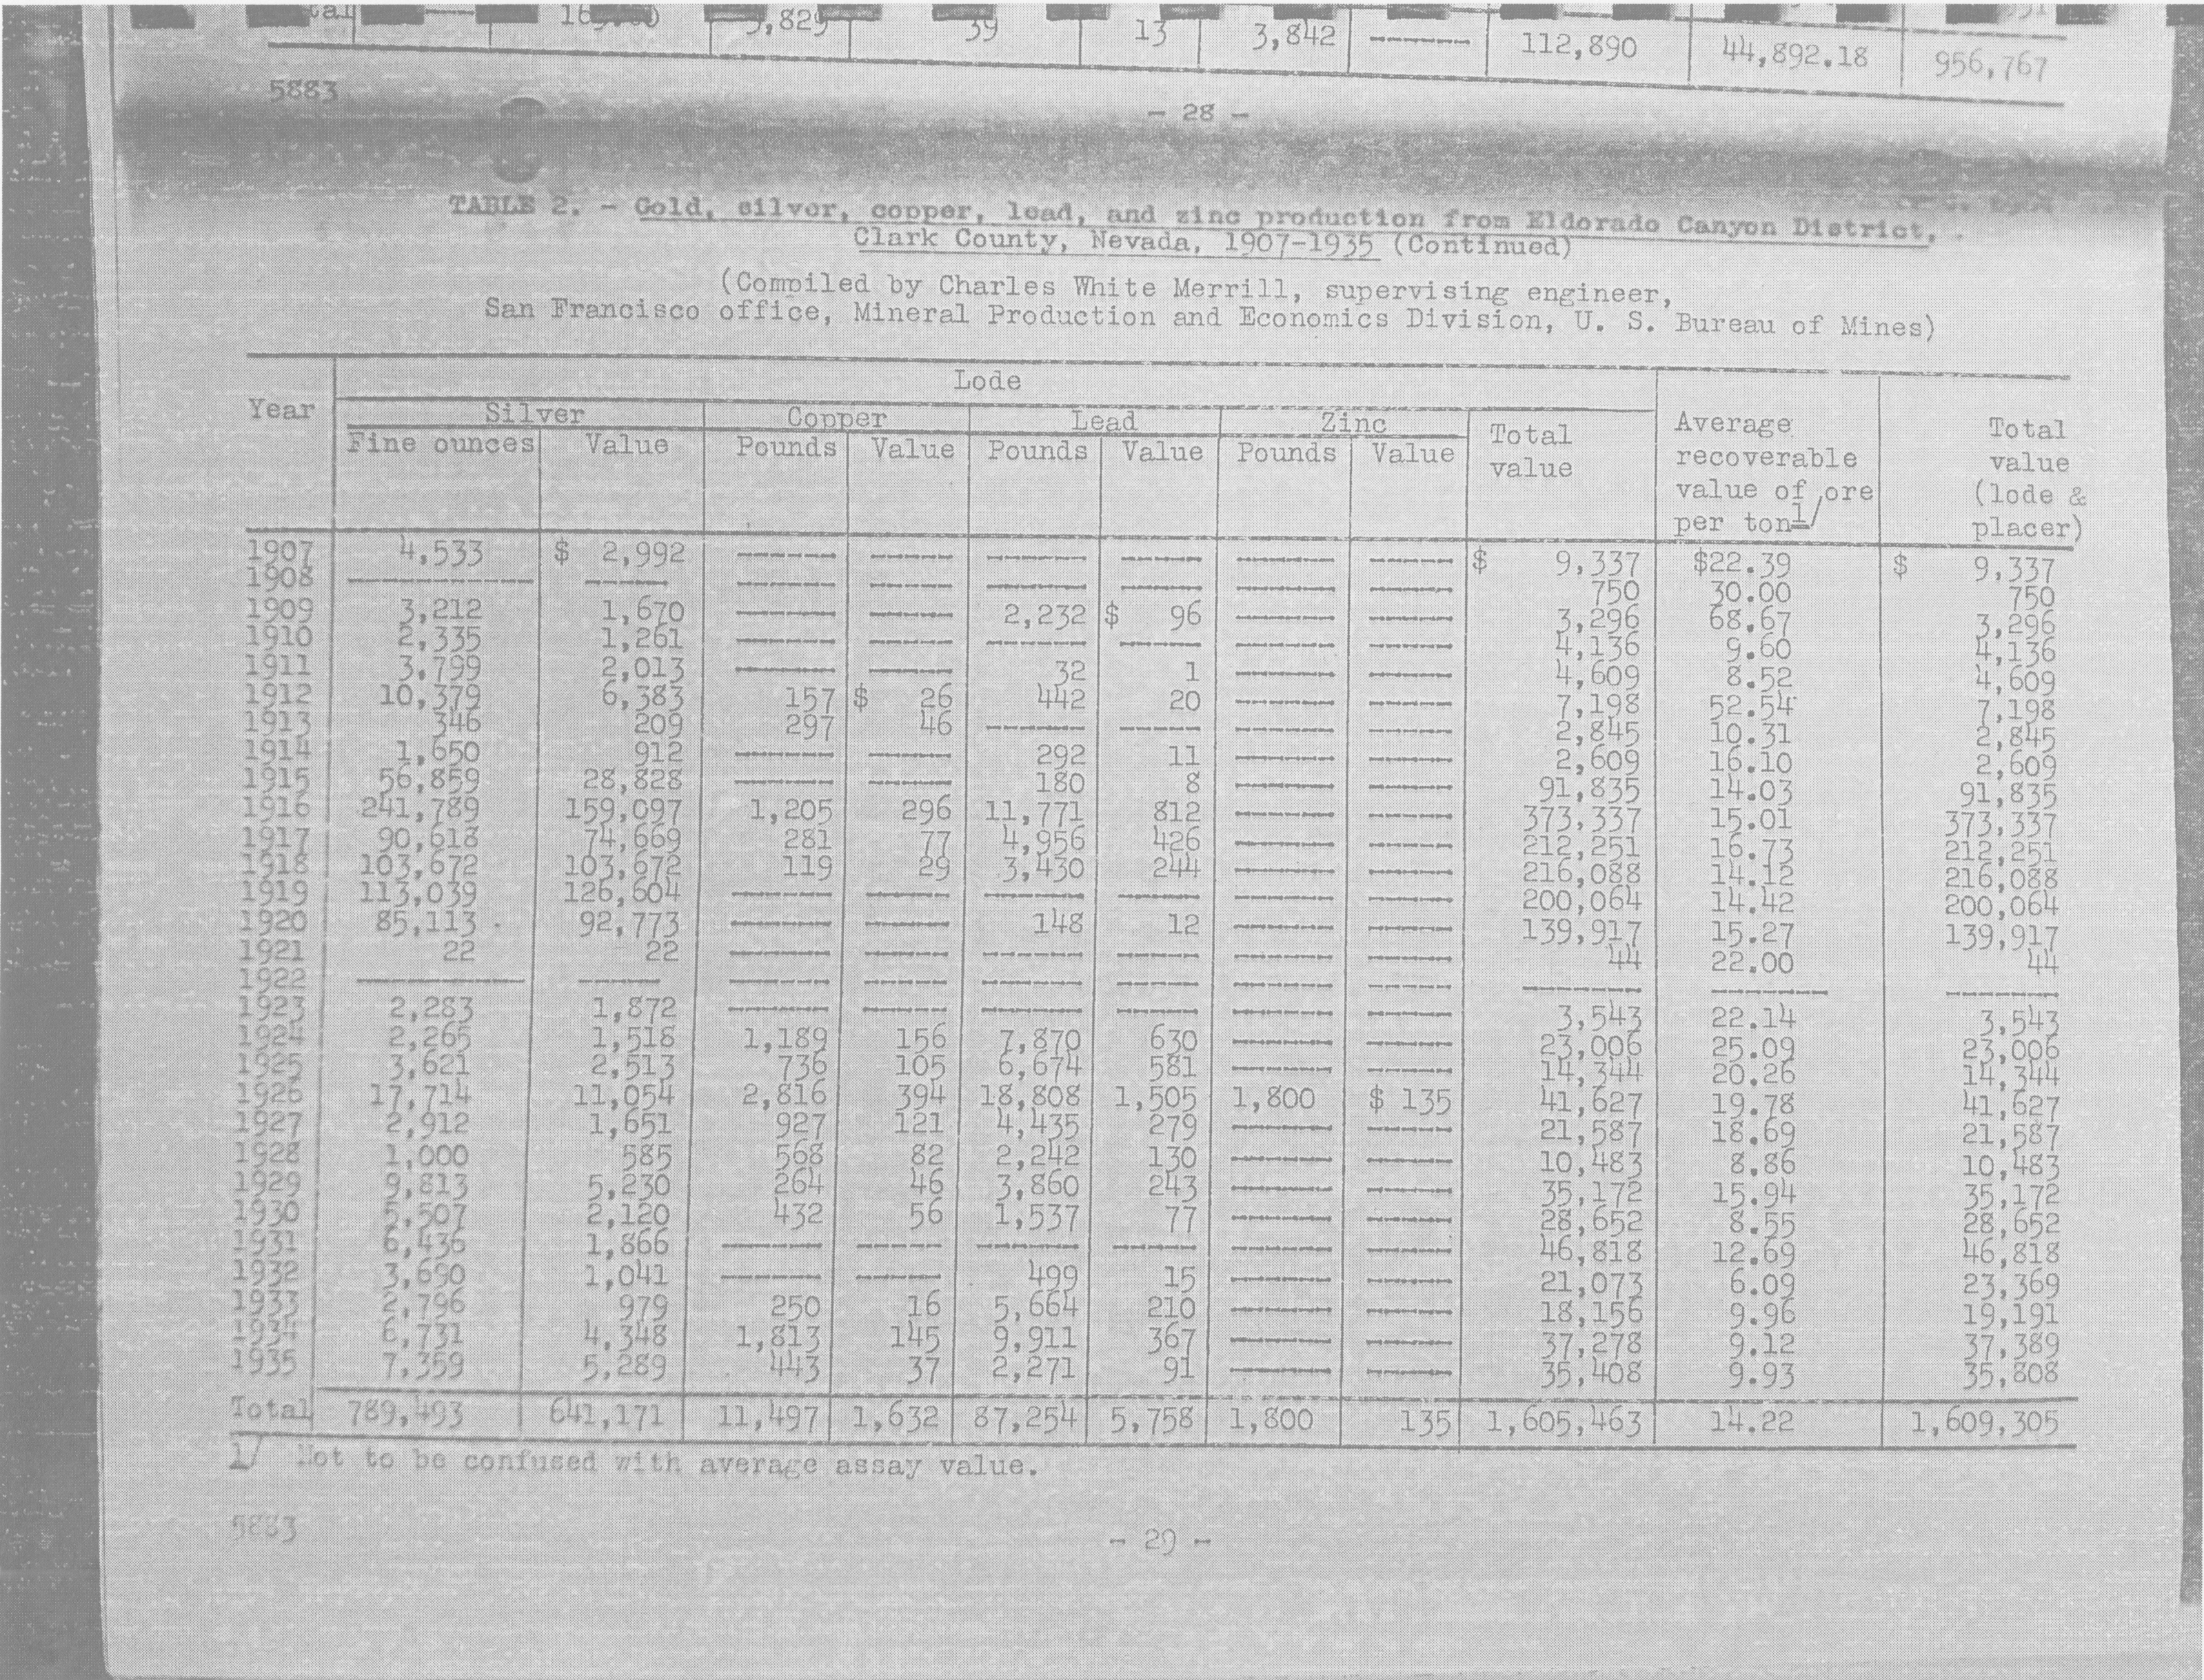 3,829 39 13 3,842 ------ 112,890 44,892.18 956,767
5883
- 28 -
TABLE 2. - Gold, silver, copper, lead, and zinc production from Eldorado Canyon District,
Clark County, Nevada, 1907-1935 (Continued)
(Compiled by Charles White Merrill, supervising engineer,
San Francisco office, Mineral Production and Economics Division, U. S. Bureau of Mines)
Lode
Year Silver Copper Lead Zinc Total value Average recoverable value of ore per ton 1/ Total value (lode & placer)
Fine ounces Value Pounds Value Pounds Value Pounds Value
1907 4,533 $ 2,992 ------ ------ ------ ------ ------ ------ $ 9,337 $22.39 $ 9,337
1908 ------ ------ ------ ------ ------ ------ ------ ------ 750 30.00 750
1909 3,212 1,670 ------ ------ 2,232 $ 96 ------ ------ 3,296 68.67 3,296
1910 2,335 1,261 ------ ------ ------ ------ ------ ------ 4,136 9.60 4,136
1911 3,799 2,013 ------ ------ 32 1 ------ ------ 4,609 8.52 4,609
1912 10,379 6,383 157 $ 26 442 20 ------ ------ 7,198 52.54 7,198
1913 346 209 297 46 ------ ------ ------ ------ 2,845 10.31 2,845
1914 1,650 912 ------ ------ 292 11 ------ ------ 2,609 16.10 2,609
1915 56,859 28,828 ------ ------ 180 8 ------ ------ 91,835 14.03 91,835
1916 241,789 159,097 1,205 296 11,771 812 ------ ------ 373,337 15.01 373,337
1917 90,618 74,669 281 77 4,956 426 ------ ------ 212,251 16.73 212,251
1918 103,672 103,672 119 29 3,430 244 ------ ------ 216,088 14.12 216,088
1919 113,039 126,604 ------ ------ ------ ------ ------ ------ 200,064 14.42 200,064
1920 85,113 92,773 ------ ------ 148 12 ------ ------ 139,917 15.27 139,917
1921 22 22 ------ ------ ------ ------ ------ ------ 44 22.00 44
1922 ------ ------ ------ ------ ------ ------ ------ ------ ------ ------ ------
1923 2,283 1,872 ------ ------ ------ ------ ------ ------ 3,543 22.14 3,543
1924 2,265 1,518 1,189 156 7,870 630 ------ ------ 23,006 25.09 23,006
1925 3,621 2,513 736 105 6,674 581 ------ ------ 14,344 20.26 14,344
1926 17,714 11,054 2,816 394 18,808 1,505 1,800 $ 135 41,627 19.78 41,627
1927 2,912 1,651 927 121 4,435 279 ------ ------ 21,587 18.69 21,587
1928 1,000 585 568 82 2,242 130 ------ ------ 10,483 8.86 10,483
1929 9,813 5,230 264 46 3,860 243 ------ ------ 35,172 15.94 35,172
1930 5,507 2,120 432 56 1,537 77 ------ ------ 28,652 8.55 28,652
1931 6,436 1,866 ------ ------ ------ ------ ------ ------ 46,818 12.69 46,818
1932 3,690 1,041 ------ ------ 499 15 ------ ------ 21,073 6.09 23,369
1933 2,796 979 250 16 5,664 210 ------ ------ 18,156 9.96 19,191
1934 6,731 4,348 1,813 145 9,911 367 ------ ------ 37,278 9.12 37,389
1935 7,359 5,289 443 37 2,271 91 ------ ------ 35,408 9.93 35,808
Total 789,493 641,171 11,497 1,632 87,254 5,758 1,800 135 1,605,463 14.22 1,609,305
1/ Not to be confused with average assay value.
5883
- 29 -